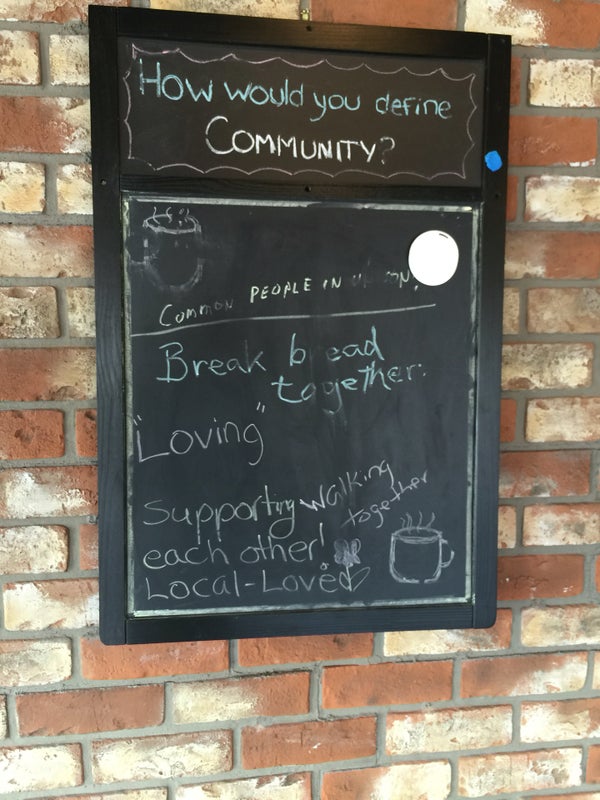 How would you define
COMMUNITY?
COMMON PEOPLE IN
Break bread
together.
"Loving"
Supporting walking
together
each other!
LOCAL-LOVE